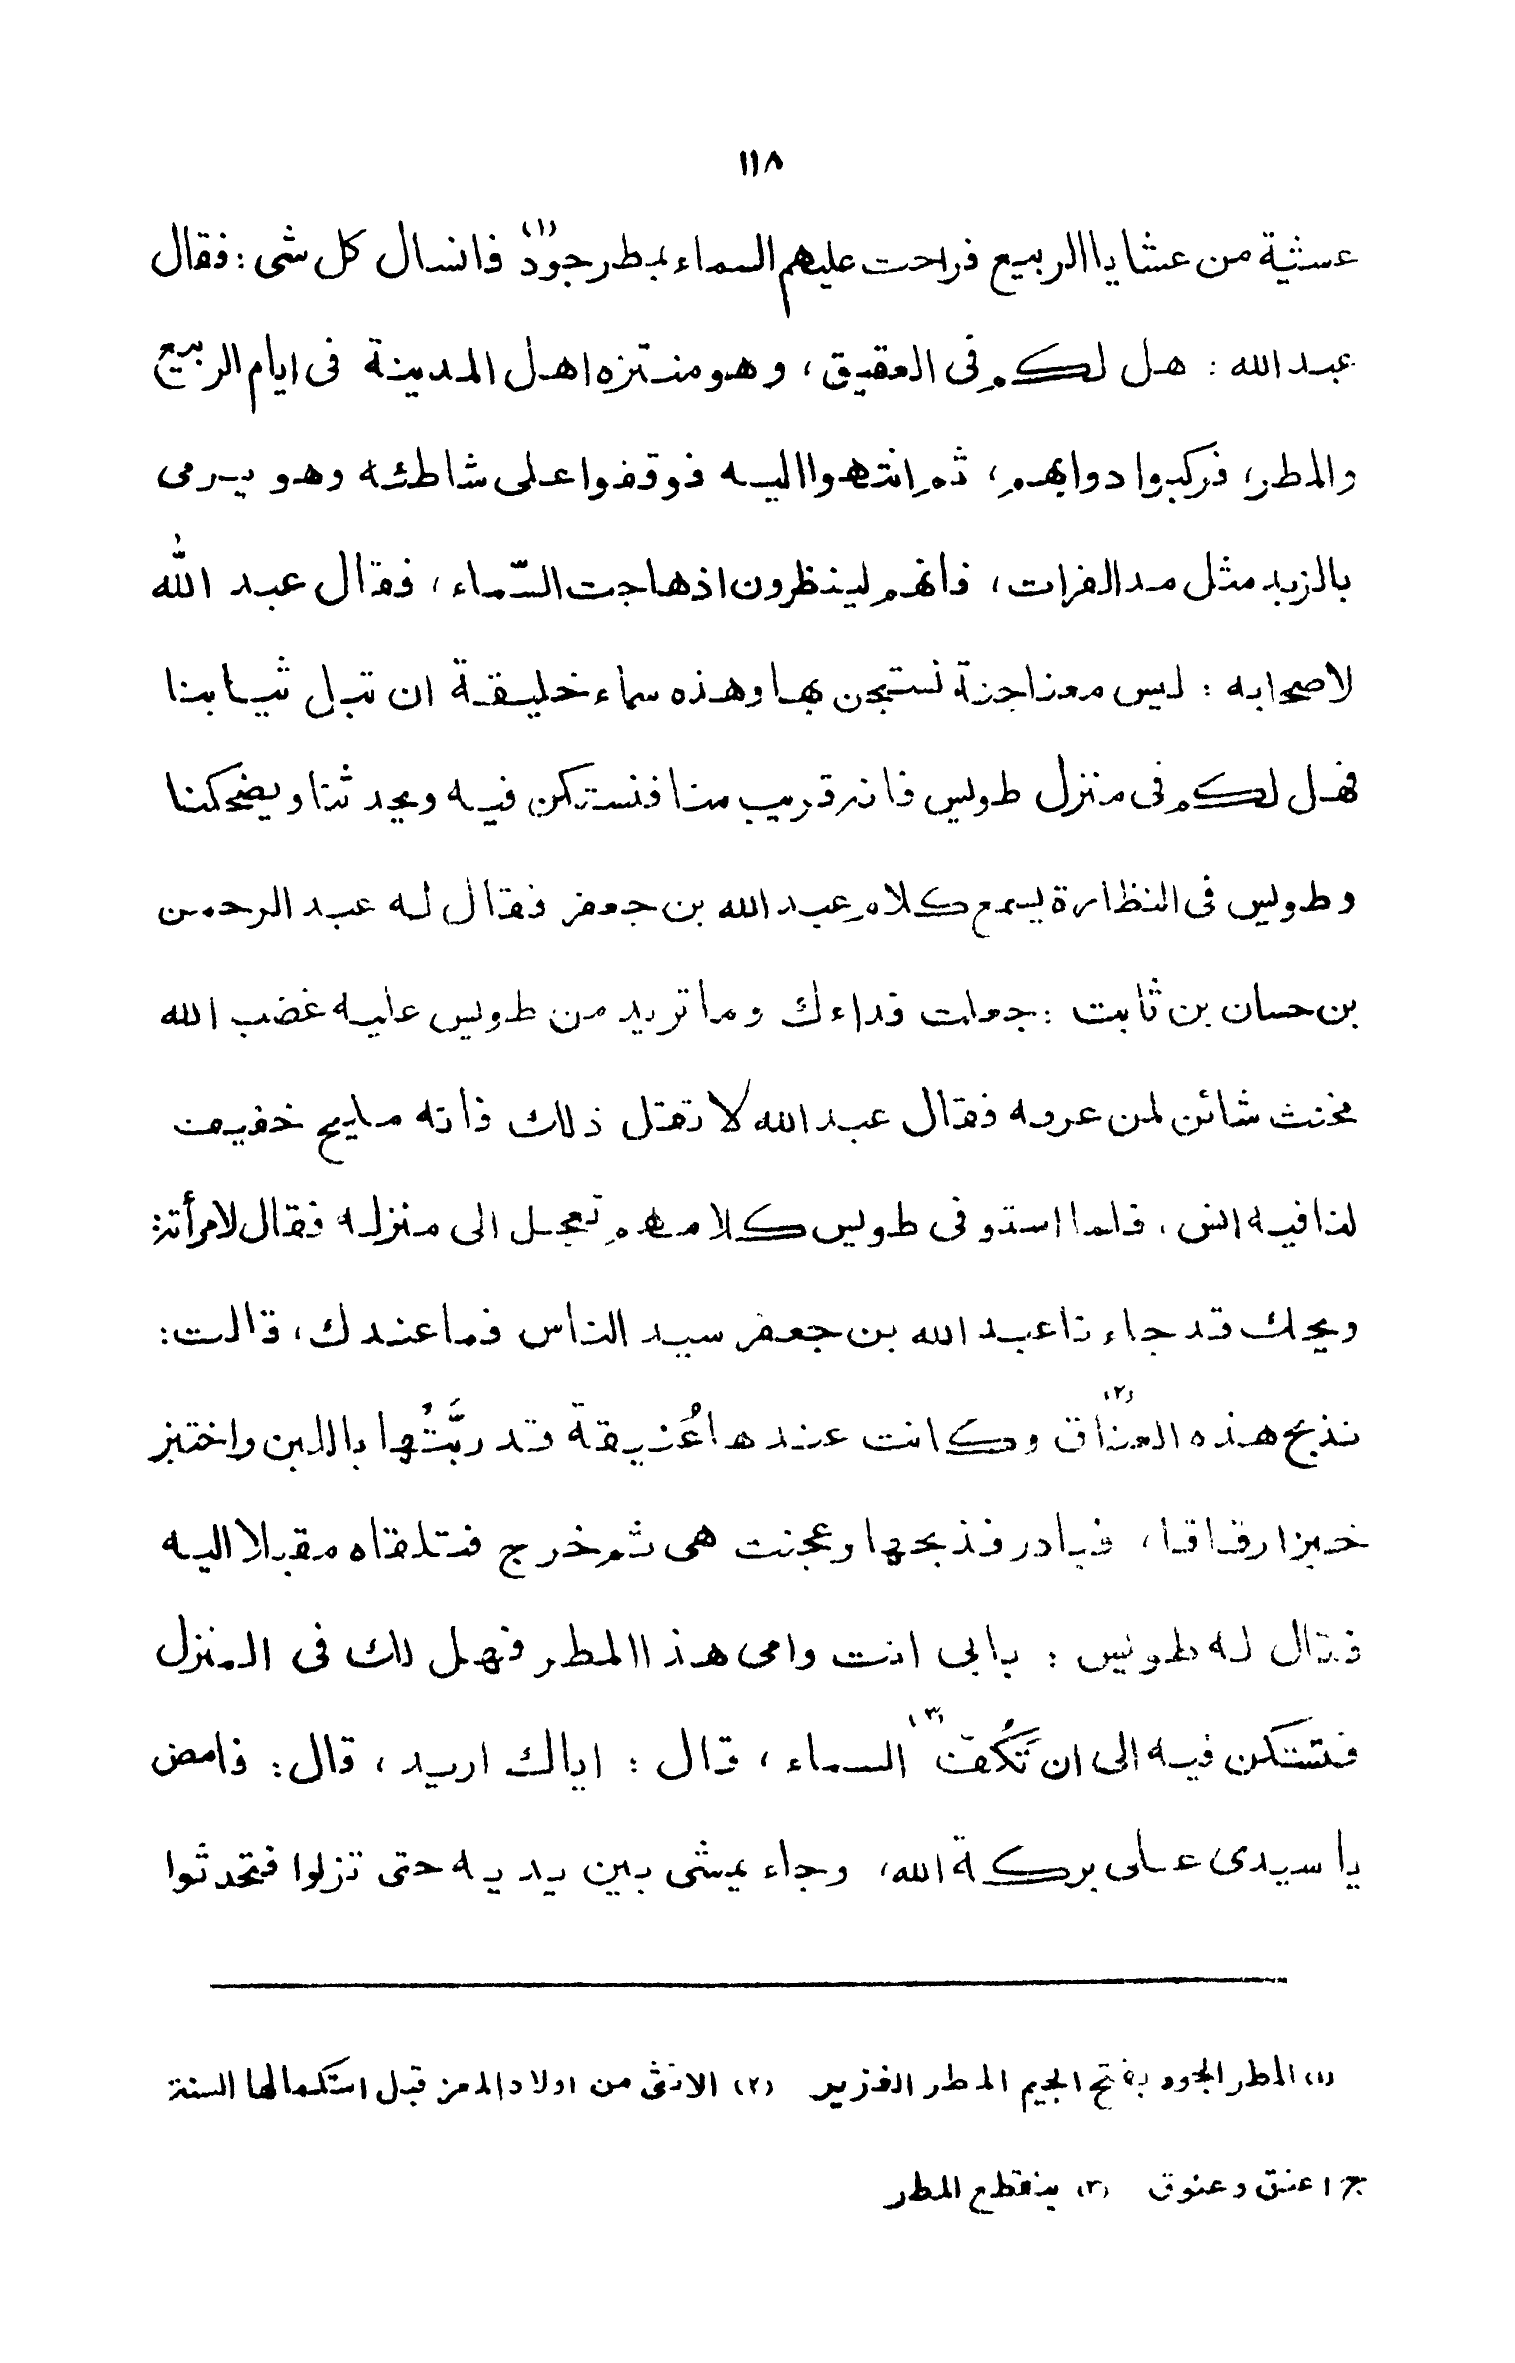 ١١٨
عشية من عشايا الربيع فراحت عليهم السماء بمطر جَوْدٍ(١) فانسال كل شى : فقال
عبد الله : هل لكم فى العقيق ، وهو منتزه اهل المدينة فى ايام الربيع
والمطر، فركبوا دوابهم، ثم انتهوا اليه فوقفوا على شاطئه وهو يرمى
بالزبد مثل مد الفرات ، فانهم لينظرون اذ هاجت السّماء ، فقال عبد الله
لاصحابه : ليس معنا جنة نستجن بها وهذه سماء خليقة ان تبل ثيابنا
فهل لكم فى منزل طويس فانه قريب منا فنستكن فيه ويحدثنا ويضحكنا
وطويس فى النظارة يسمع كلام عبد الله بن جعفر فقال له عبد الرحمن
بن حسان بن ثابت : جعلت فداءك وما تريد من طويس عليه غضب الله
مخنث شائن لمن عرفه فقال عبد الله لا تقل ذلك فانه مليح خفيف
لنا فيه انس ، فلما استوفى طويس كلامهم تعجل الى منزله فقال لامرأته :
ويحك قد جاءنا عبد الله بن جعفر سيد الناس فما عندك ، قالت :
نذبح هذه العناق(٢) وكانت عندها عُنيقة قد ربَّتْها باللبن واختبز
خبزا رقاقا ، فبادر فذبحها وعجنت هى ثم خرج فتلقاه مقبلا اليه
فقال له طويس : بابى انت وامى هذا المطر فهل لك فى المنزل
فتستكن فيه الى ان تَكُفّ(٣) السماء ، قال : اياك اريد ، قال : فامض
يا سيدى على بركة الله ، وجاء يمشى بين يديه حتى نزلوا فتحدثوا
(١) المطر الجود بفتح الجيم المطر الغزير (٢) الانثى من اولاد المعز قبل استكمالها السنة
ج اعنق وعنوق (٣) ينقطع المطر